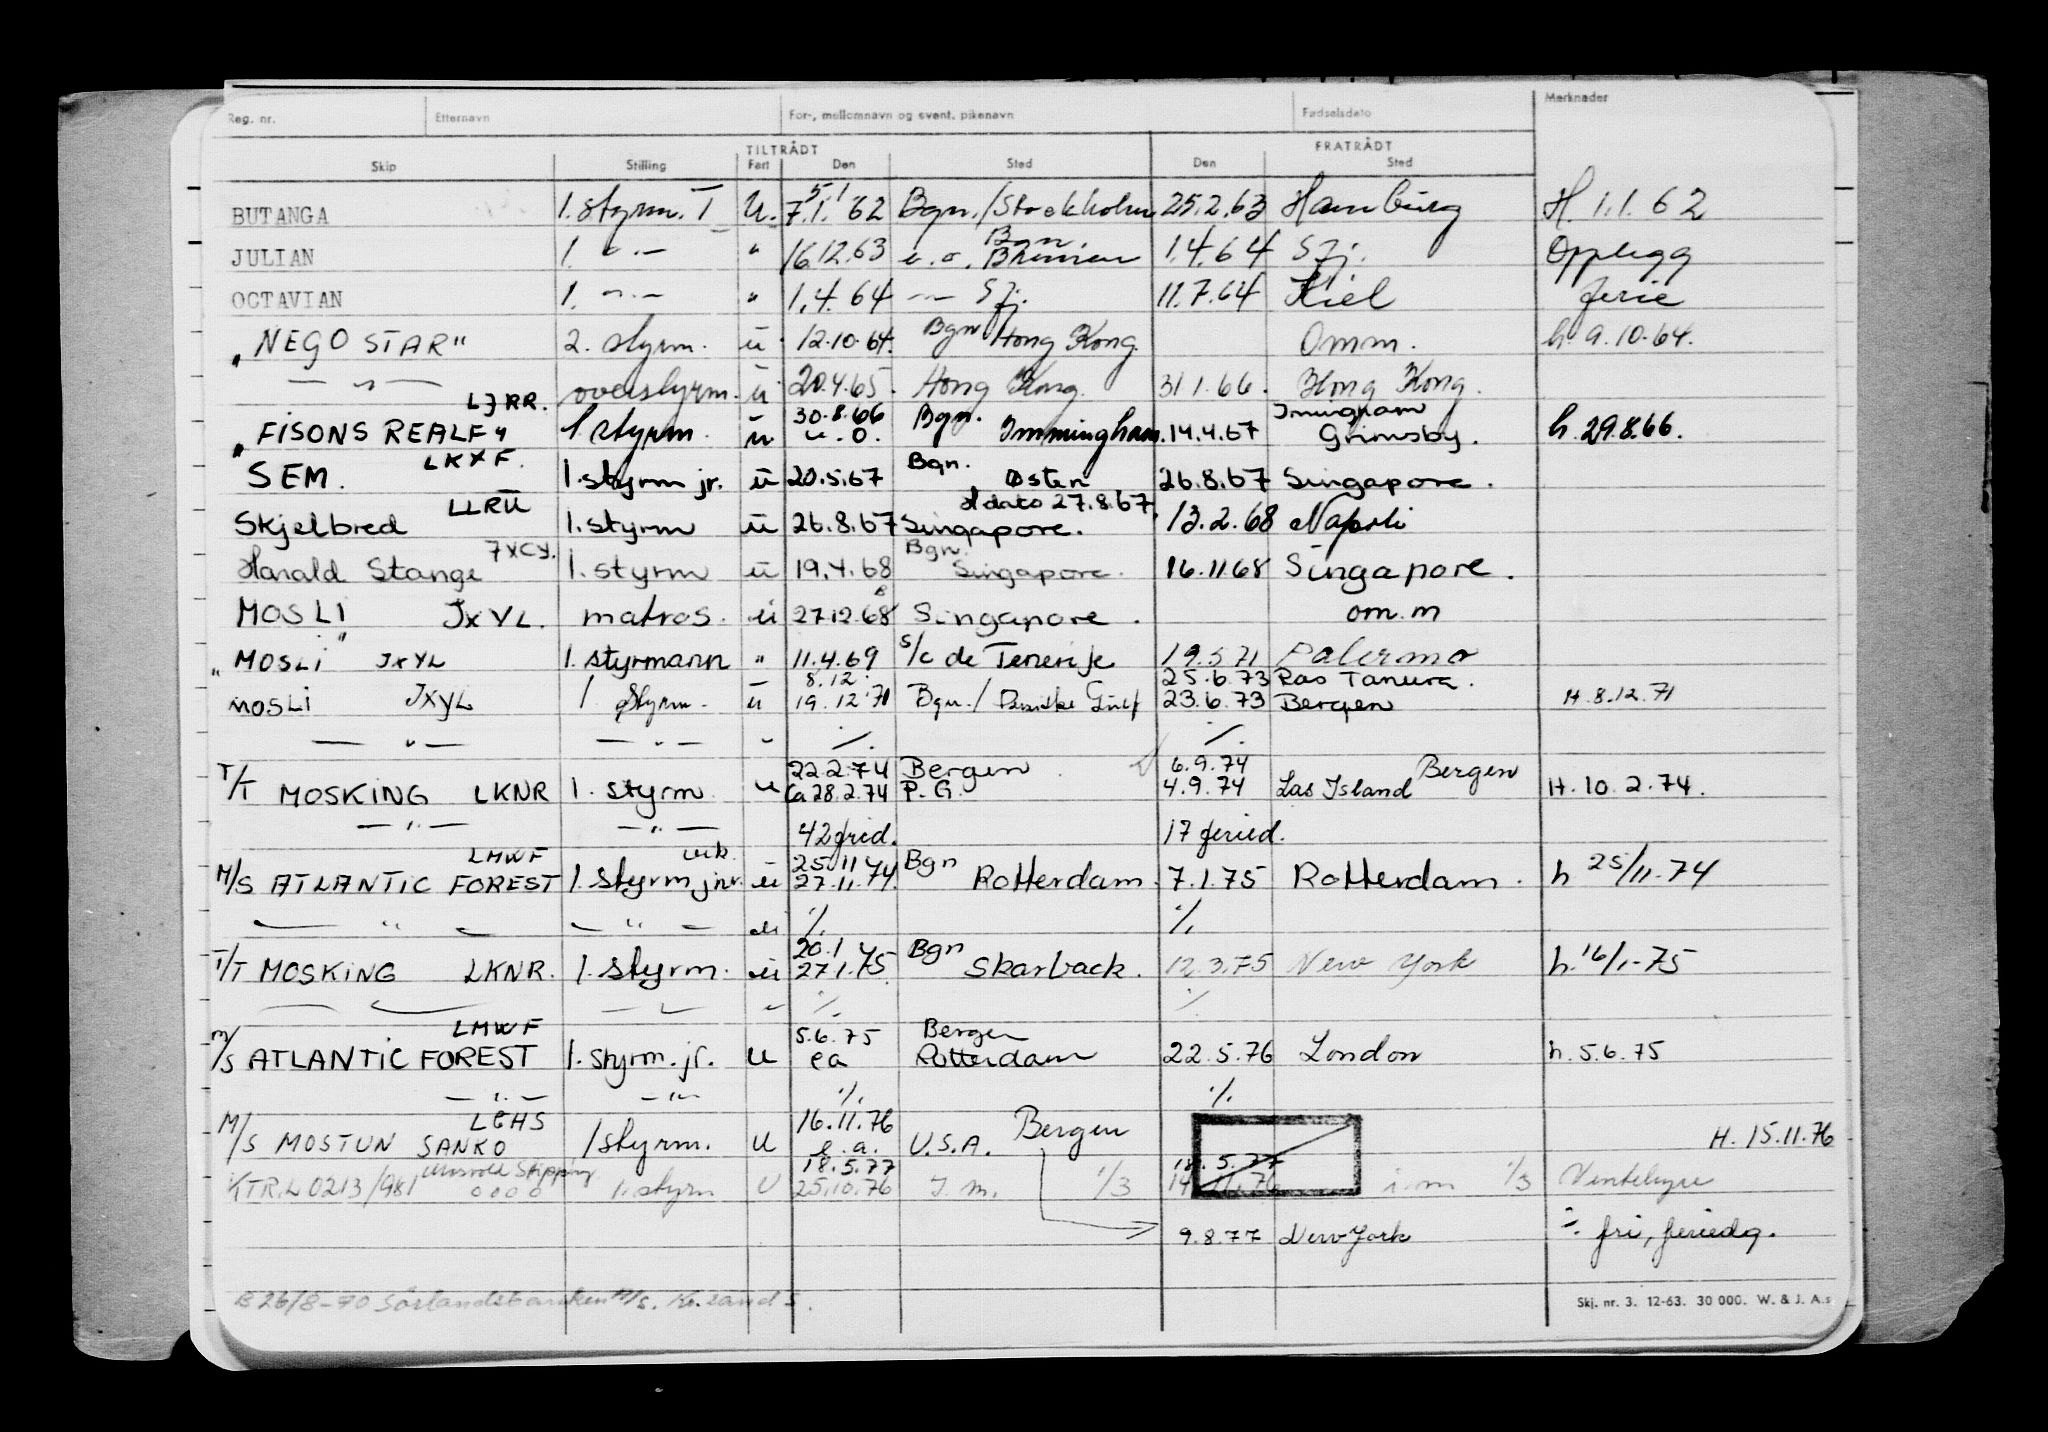 Reg. nr. Etternavn For-, mellomnavn og event. pikenavn Fødselsdato Merknader
TILTRÅDT FRATRÅDT
Skip Stilling Fart Den Sted Den Sted
BUTANGA 1. styrm. I U. 5/1 7.1.62 Bgn./Stockholm 25.2.63 Hamburg H. 1.1.62
JULIAN 1. -"- " 16.12.63 Bgn. u.o. Bremen 1.4.64 Szj. Opplegg
OCTAVIAN 1. -"- " 1.4.64 -"- Szj. 11.7.64 Kiel ferie
"NEGO STAR" 2. styrm. u 12.10.64. Bgn Hong Kong Omm. h. 9.10.64.
-"- overstyrm. u 20.4.65. Hong Kong. 31.1.66. Hong Kong.
LJRR. 30.8.66 Bgn. Immingham
"FISONS REALF" 1 styrm. u u.o. Immingham. 14.4.67 Grimsby. h. 29.8.66.
SEM. LKXF. 1. styrm jr. u 20.5.67 Bgn. Østen 26.8.67 Singapore.
H dato 27.8.67.
Skjelbred LLRU 1. styrm u 26.8.67 Singapore. 13.2.68 Napoli
Harald Stange 7XCY. 1. styrm u 19.4.68 Bgn. Singapore. 16.11.68 Singapore.
MOSLI JXYL. matros. u 27.12.68 Singapore. om.m
"MOSLI" JXYL 1. styrmann " 11.4.69 S/C de Tenerife 19.5.71 Palermo
8.12. 25.6.73 Ras Tanura.
MOSLI JXYL 1 styrm. u 19.12.71 Bgn./ Persiske Gulf 23.6.73 Bergen H. 8.12.71
-"- -"- " ./. ./.
22.2.74 Bergen 6.9.74 Bergen
T/T MOSKING LKNR 1. styrm. u ca 28.2.74 P.G. 4.9.74 Las Island H. 10.2.74.
-"- -"- 42 frid. 17 feried.
LMWF 25.11.74 Bgn
M/S ATLANTIC FOREST 1. styrm jnr. u 27.11.74. Rotterdam. 7.1.75 Rotterdam. h 25/11-74
-"- -"- u ./. ./.
20.1 Bgn
T/T MOSKING LKNR. 1. styrm. u 27.1.75. Skarback. 12.3.75 New York h. 16/1-75
-"- -"- " ./. ./.
LMWF 5.6.75 Bergen
M/S ATLANTIC FOREST 1. styrm. jr. U ea Rotterdam 22.5.76 London h. 5.6.75
-"- -"- ./. ./.
LEHS 16.11.76 Bergen
M/S MOSTUN SANKO 1 styrm. U e.a. U.S.A. H. 15.11.76
Mosvold Shipping 18.5.77 18.5.77
KTR.L 0213/981 0000 1. styrm U 25.10.76 I.m. 1/3 14.11.76 i m 1/3 Ventehyre
9.8.77 New York ./. fri, feriedg.
B 26/8-70 Sørlandsbanken A/S. Kr.sand S.
Skj. nr. 3. 12-63. 30 000. W. & J. A.s